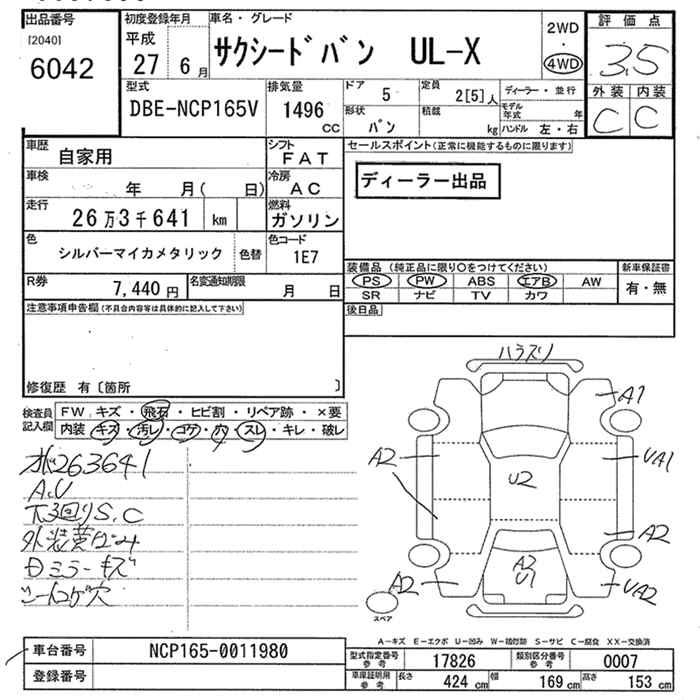 出品番号
[2040]
6042
初度登録年月
平成
27 6月
車名・グレード
サクシードバン UL-X
2WD
・
4WD
評価点
3.5
外装 内装
C C
型式
DBE-NCP165V
排気量
1496
CC
ドア
5
定員
2[5]人
ディーラー・並行
形状
バン
積載
kg
モデル年式
年
ハンドル 左・右
車歴
自家用
シフト
FAT
セールスポイント(正常に機能するものに限ります)
ディーラー出品
車検
年 月( 日)
冷房
AC
走行
26万3千641 km
燃料
ガソリン
色
シルバーマイカメタリック
色替
色コード
1E7
装備品(純正品に限り○をつけてください)
PS PW ABS エアB AW
SR ナビ TV カワ
新車保証書
有・無
R券
7,440円
名変通知期限
月 日
後日品
注意事項申告欄(不具合内容等は具体的に記入して下さい)
修復歴 有〔箇所 〕
検査員
記入欄
FW キズ・飛石・ヒビ割・リペア跡・×要
内装 キズ・汚レ・コゲ・穴・スレ・キレ・破レ
263641
A.U
下回りS.C
ミラーキズ
ハラスリ
A1
A2
UA1
U2
A2
A2
U1
A2
UA2
スペア
A-キズ E-エクボ U-凹み W-補修跡 S-サビ C-腐食 XX-交換済
車台番号
NCP165-0011980
登録番号
型式指定番号
参考
17826
類別区分番号
参考
0007
車庫証明用
参考
長さ
424 cm
幅
169 cm
高さ
153 cm